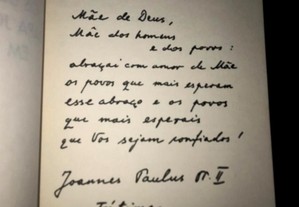 Mãe de Deus,
Mãe dos homens
e dos povos:
abraçai com amor de Mãe
os povos que mais esperam
esse abraço e os povos
que mais esperais
que Vos sejam confiados!
Joannes Paulus II